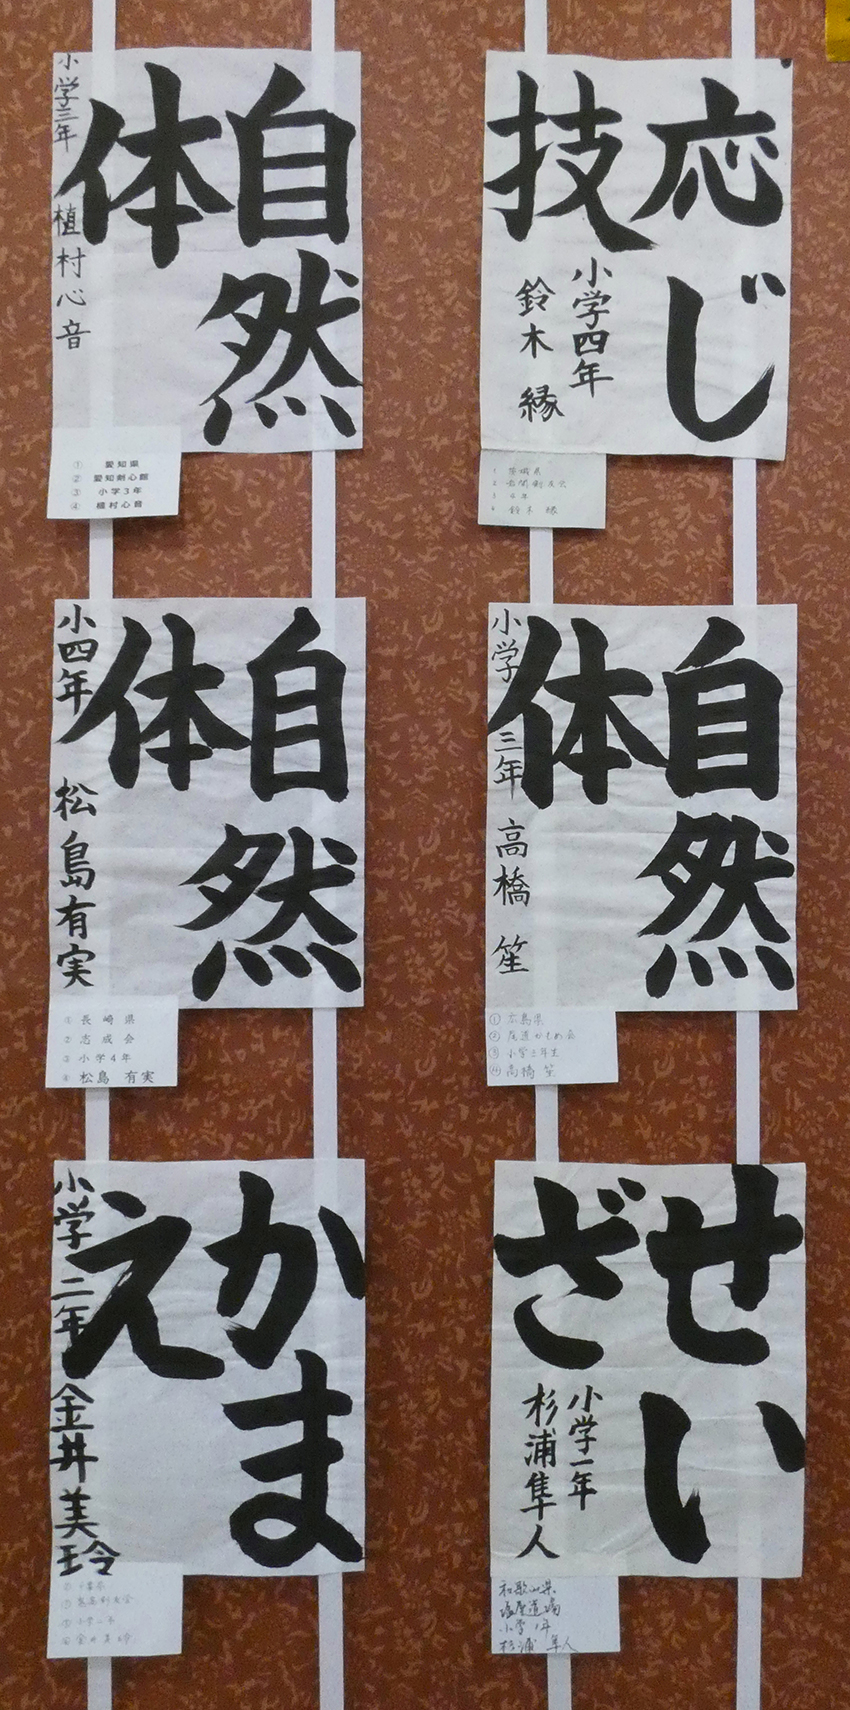 応じ
技
小学四年
鈴木 縁
4年
鈴木 縁
自然
体
小学三年 植村心音
① 愛知県
② 愛知剣心館
③ 小学3年
④ 植村心音
自然
体
小学三年 高橋 笙
① 広島県
② 尾道かもめ会
③ 小学三年生
④ 高橋 笙
自然
体
小四年 松島有実
① 長崎県
② 志成会
③ 小学4年
④ 松島 有実
せい
ざ
小学一年
杉浦隼人
和歌山県
塩屋道場
小学1年
杉浦 隼人
かま
え
小学二年 金井美玲